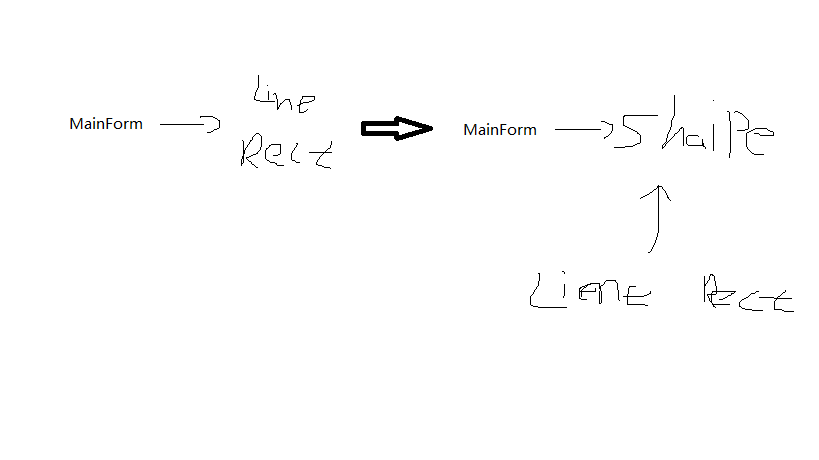 MainForm
Line
Rect
MainForm
Shaipe
Liene Rect